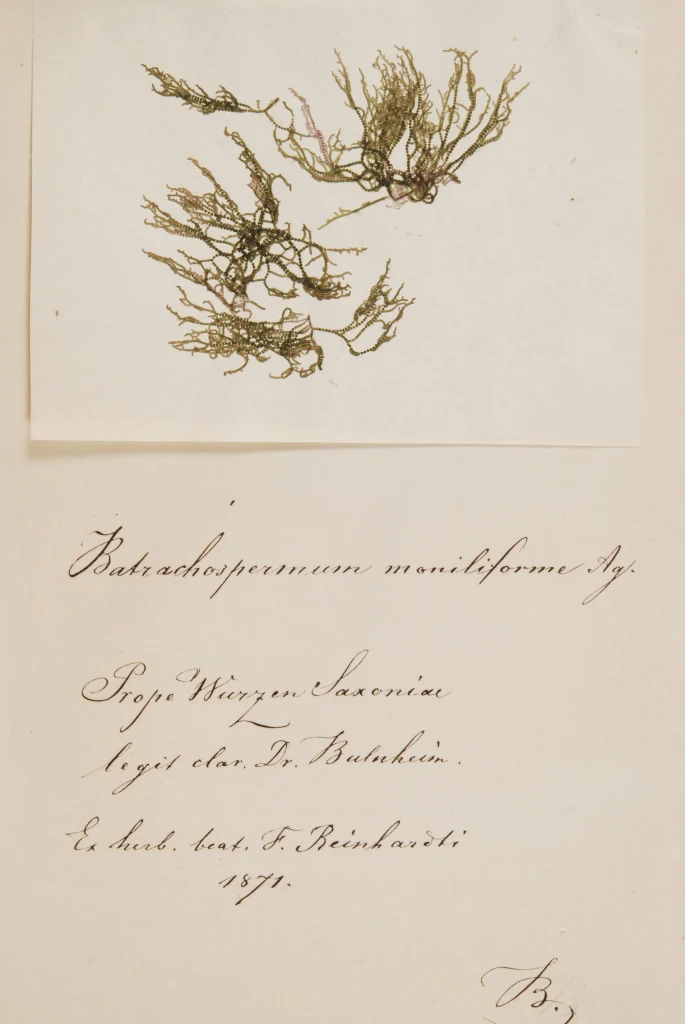 Batrachospermum moniliforme Ag.
Prope Wurzen Saxoniae
legit clar. Dr. Bulnheim.
Ex herb. beat. F. Reinhardti
1871.
B.